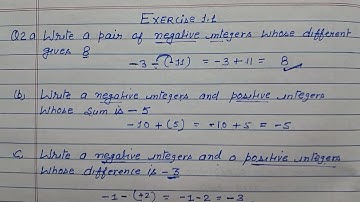 EXERCISE 1.1
Q2 a Write a pair of negative integers whose different
gives 8
-3 - (-11) = -3 + 11 = 8
(b) Write a negative integers and positive integers
whose sum is - 5
-10 + (5) = -10 + 5 = -5
C, Write a negative integers and a positive integers
whose difference is -3
-1 - (+2) = -1 - 2 = -3